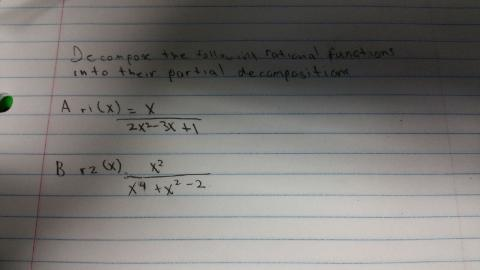 Decompose the following rational functions
into their partial decompositions
A r1(x) = x
2x²-3x+1
B r2(x) x²
x⁴+x²-2